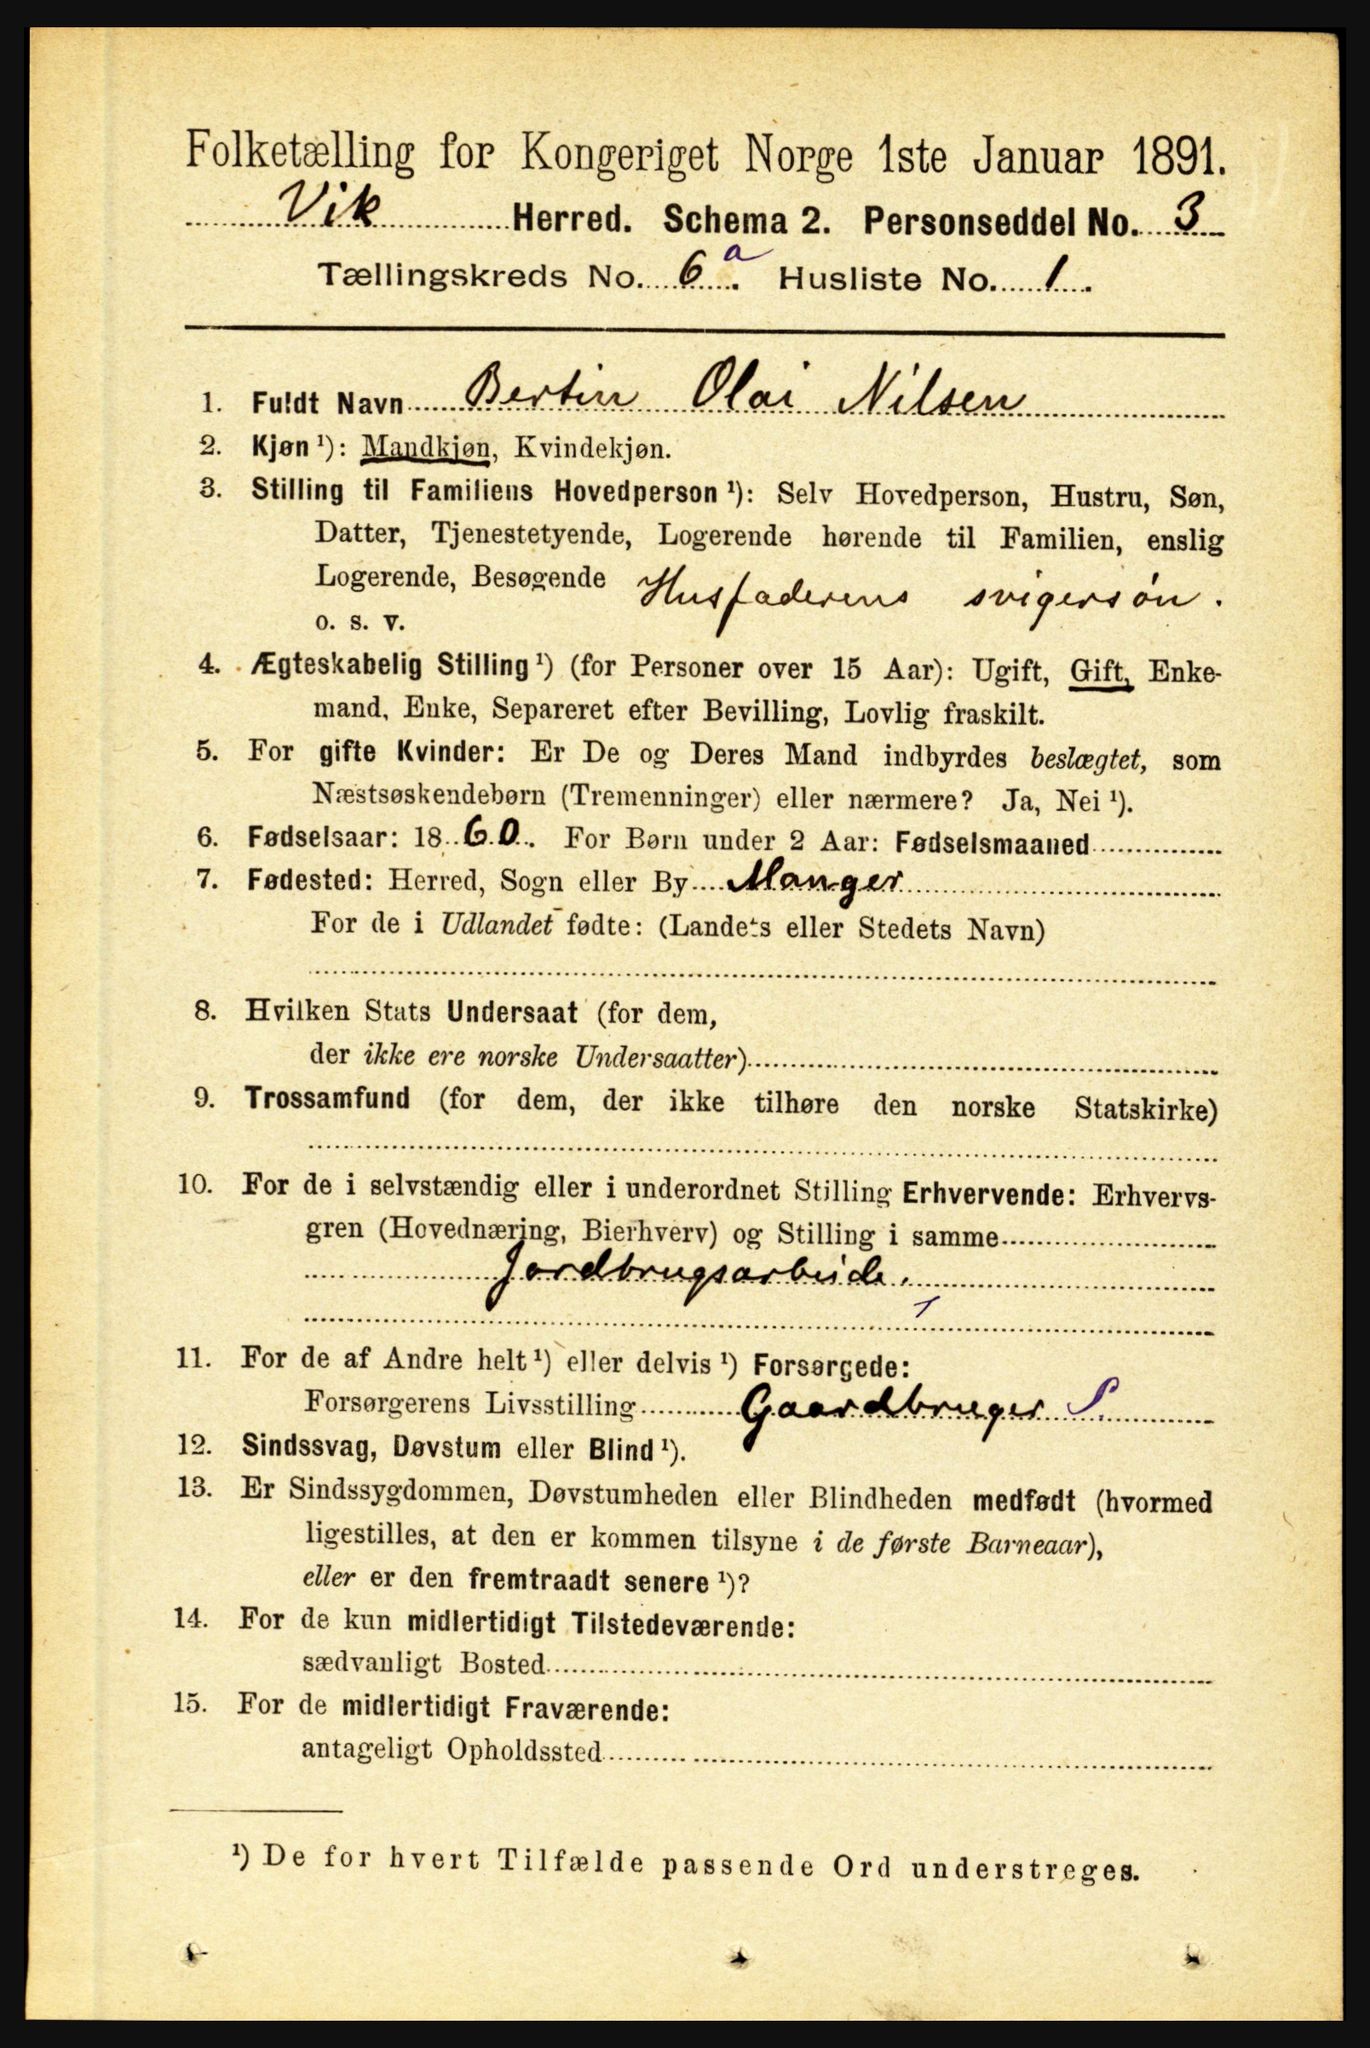 Folketælling for Kongeriget Norge 1ste Januar 1891.
Vik Herred. Schema 2. Personseddel No. 3
Tællingskreds No. 6 a. Husliste No. 1.
1. Fuldt Navn Bertin Olai Nilsen
2. Kjøn ¹): Mandkjøn, Kvindekjøn.
3. Stilling til Familiens Hovedperson ¹): Selv Hovedperson, Hustru, Søn,
Datter, Tjenestetyende, Logerende hørende til Familien, enslig
Logerende, Besøgende Husfaderens svigersøn.
o. s. v.
4. Ægteskabelig Stilling ¹) (for Personer over 15 Aar): Ugift, Gift, Enke-
mand, Enke, Separeret efter Bevilling, Lovlig fraskilt.
5. For gifte Kvinder: Er De og Deres Mand indbyrdes beslægtet, som
Næstsøskendebørn (Tremenninger) eller nærmere? Ja, Nei ¹).
6. Fødselsaar: 1860. For Børn under 2 Aar: Fødselsmaaned
7. Fødested: Herred, Sogn eller By Manger
For de i Udlandet fødte: (Landets eller Stedets Navn)
8. Hvilken Stats Undersaat (for dem,
der ikke ere norske Undersaatter)
9. Trossamfund (for dem, der ikke tilhøre den norske Statskirke)
10. For de i selvstændig eller i underordnet Stilling Erhvervende: Erhvervs-
gren (Hovednæring, Bierhverv) og Stilling i samme
Jordbrugsarbeide.
11. For de af Andre helt ¹) eller delvis ¹) Forsørgede:
Forsørgerens Livsstilling Gaardbruger S.
12. Sindssvag, Døvstum eller Blind ¹).
13. Er Sindssygdommen, Døvstumheden eller Blindheden medfødt (hvormed
ligestilles, at den er kommen tilsyne i de første Barneaar),
eller er den fremtraadt senere ¹)?
14. For de kun midlertidigt Tilstedeværende:
sædvanligt Bosted
15. For de midlertidigt Fraværende:
antageligt Opholdssted
¹) De for hvert Tilfælde passende Ord understreges.